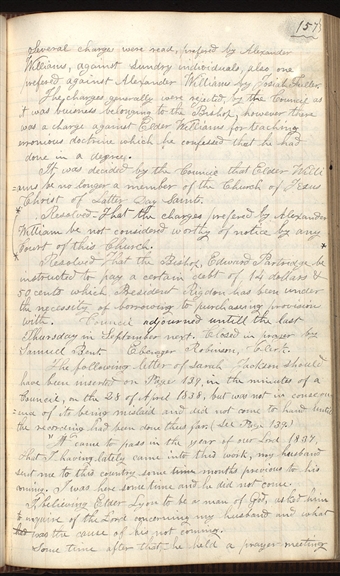 157
Several charges were read, prefered by Alexander
Williams, against sundry individuals, also one
prefered against Alexander Williams by Josiah Fuller.
The charges generally were rejected, by the Council as
it was buisness belonging to the Bishop, however there
was a charge against Elder Williams for teaching
erronious doctrine which he confessed that he had
done in a degree.
It was decided by the Council that Elder Willi
=ams be no longer a member of the Church of Jesus
Christ of Latter Day Saints.
* Resolved - That the charges prefered by Alexander
William be not considered worthy of notice by any
Court of this Church. *
Resolved That the Bishop, Edward Partridge be
instructed to pay a certain debt of 14 dollars &
50 cents which President Rigdon has been under
the necessity of borrowing to purchasing provision
with. Council adjourned untill the last
Thursday in September next. Closed in prayer by
Samuel Bent Ebenezer Robinson, Clerk.
The following letter of Sarah Jackson should
have been inserted on Page 139, in the minutes of a
Council, on the 28 of April 1838, but was not in consequ
=ence of its being mislaid and did not come to hand until
the recording had been done thus far (See Page 139)
"It came to pass in the year of our Lord 1837,
that I having lately came into this work, my husband
sent me to this country some months previous to his
coming, I was here some time and he did not come.
I believing Elder Lyon to be a man of God, asked him
to enquire of the Lord concerning my husband and what
was the cause of his not coming.
Some time after that he held a prayer meeting